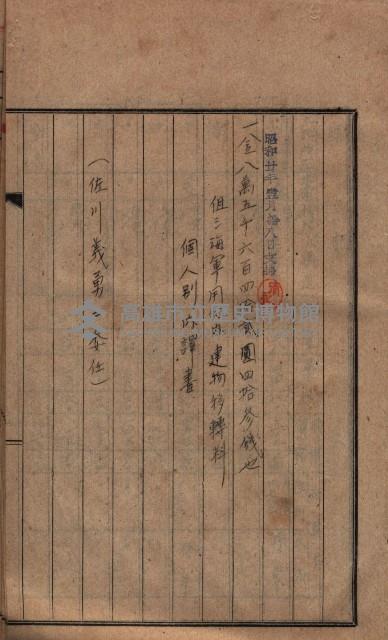 昭和廿年壹月拾八日支拂
一金八萬五千六百四拾貳圓四拾參錢也
但シ海軍用地建物移轉料
個人別內譯書
(佐川義勇委任)
高雄市立歷史博物館